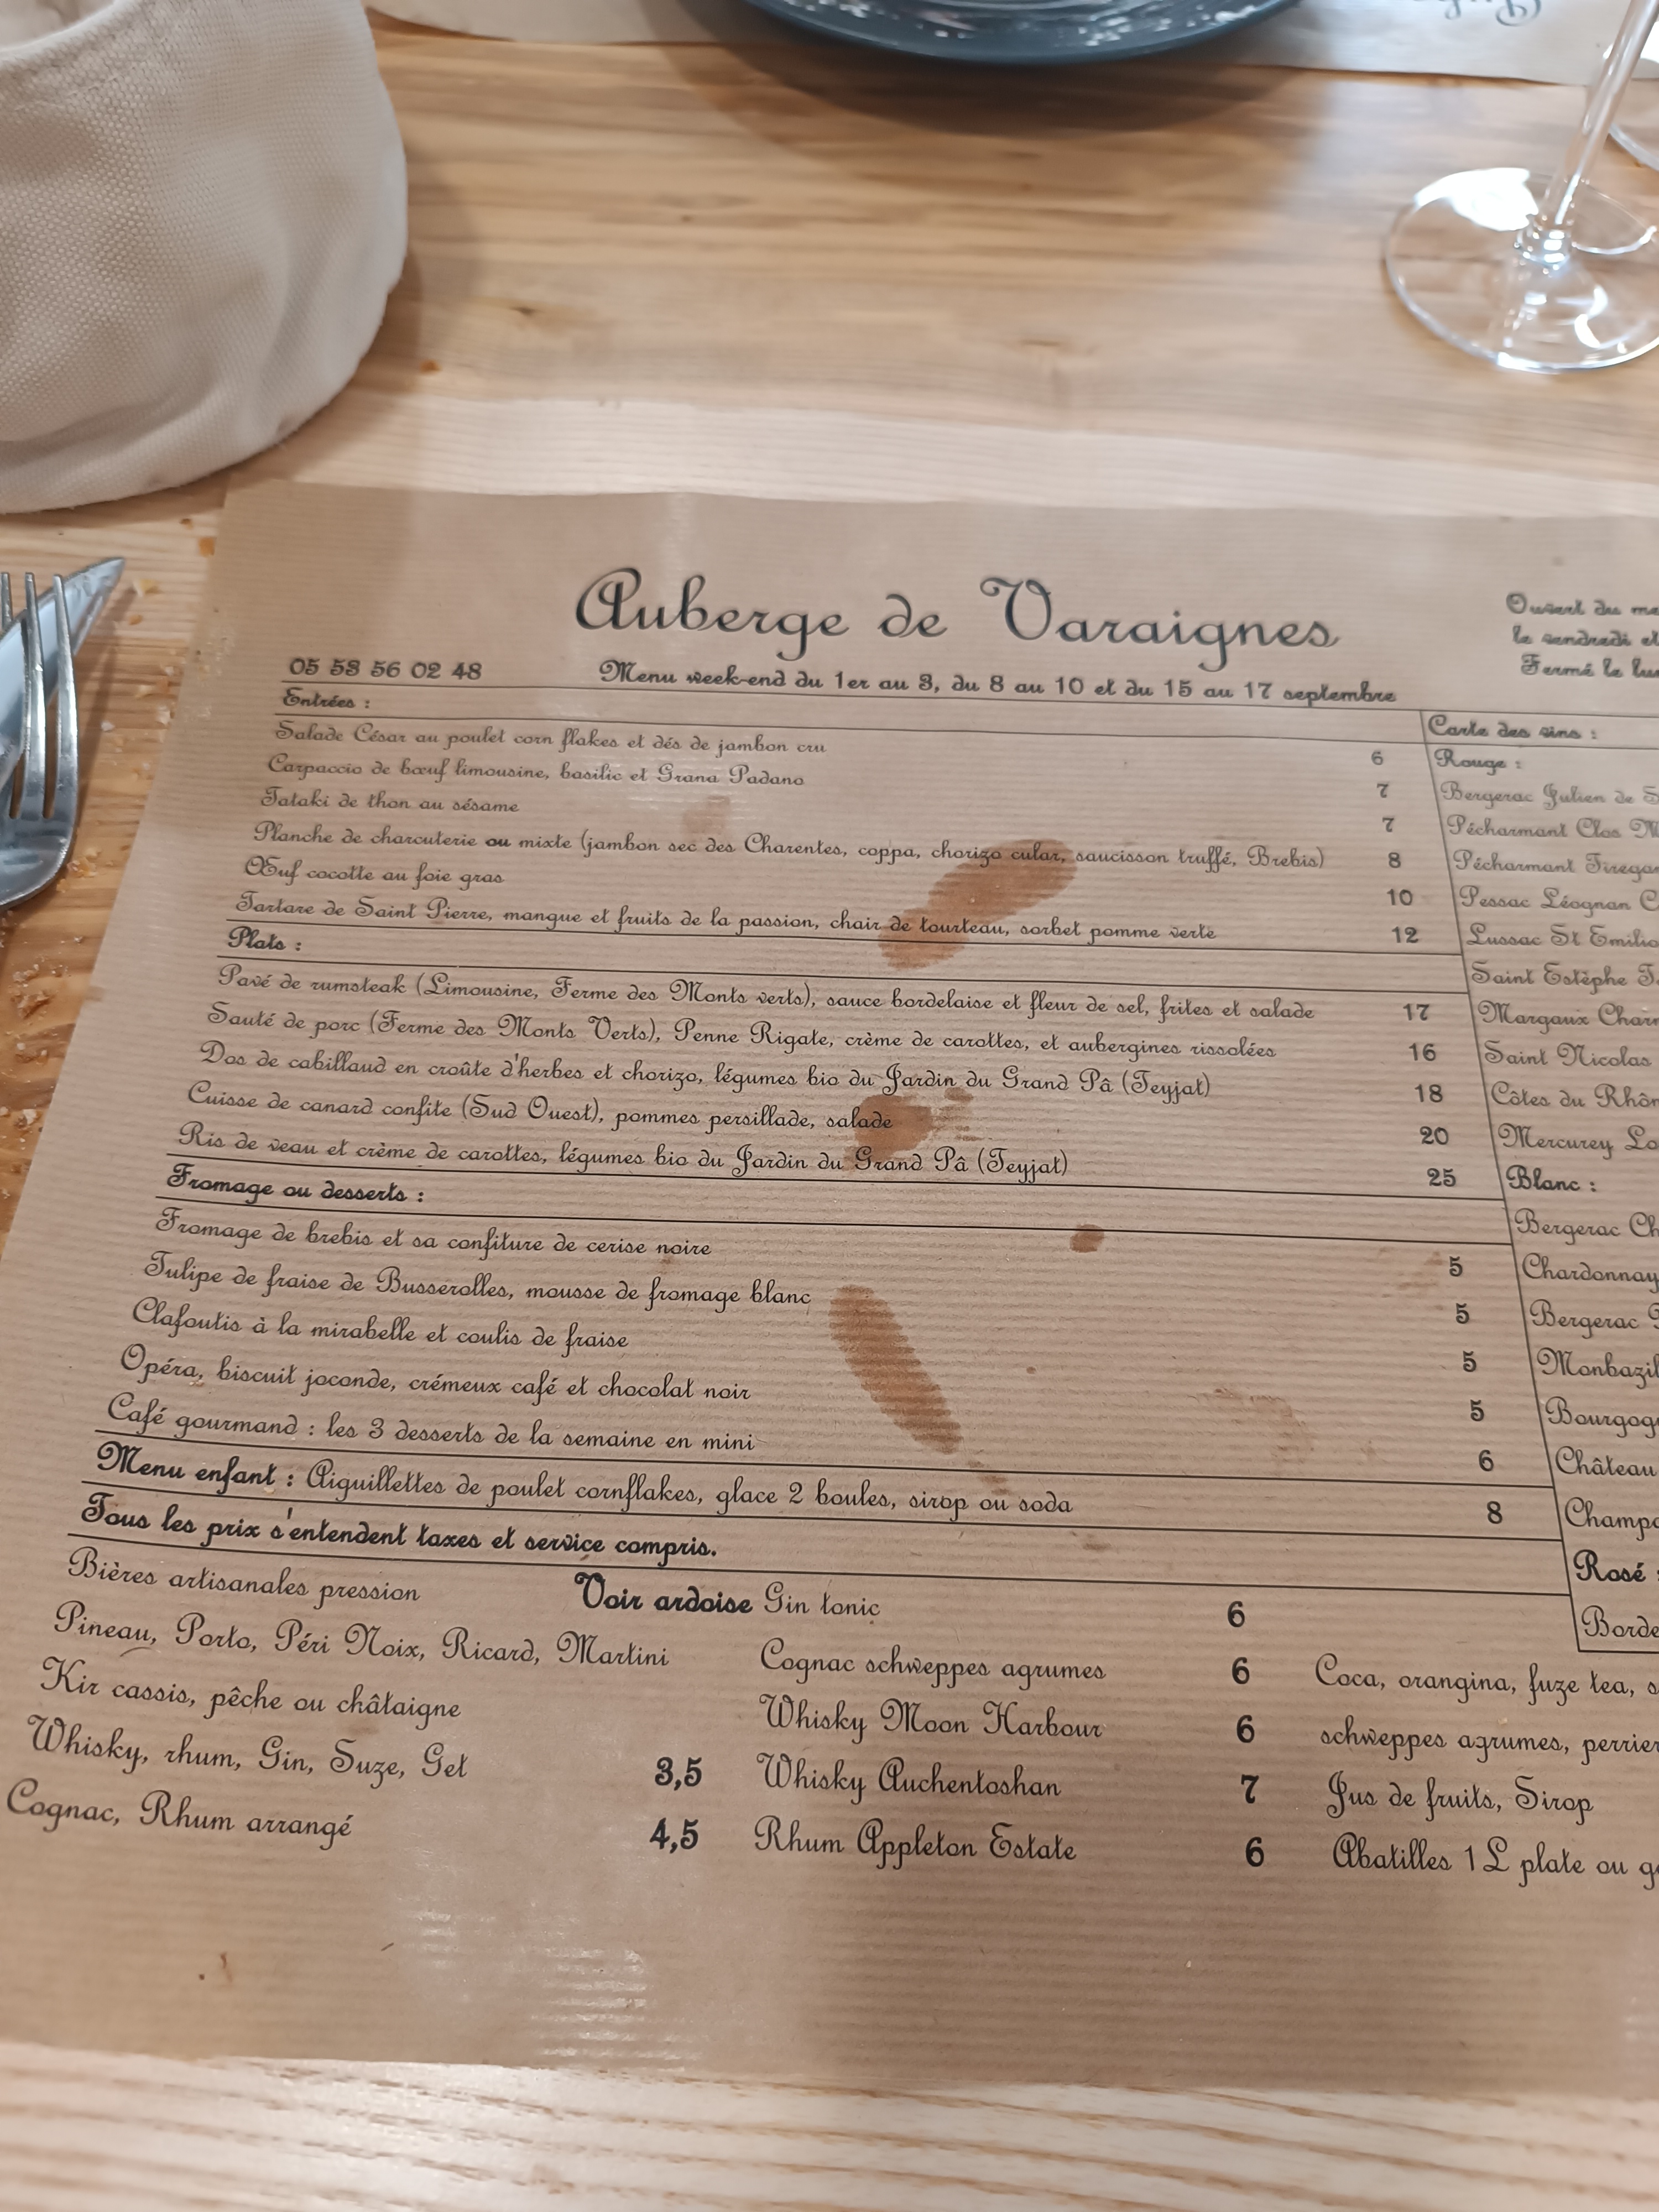 Auberge de Varaignes
05 53 56 02 48
Menu week-end du 1er au 3, du 8 au 10 et du 15 au 17 septembre
Ouvert du
le vendredi et
Fermé le
Entrées :
Salade César au poulet corn flakes et dés de jambon cru 6
Carpaccio de bœuf limousine, basilic et Grana Padano 7
Tataki de thon au sésame 7
Planche de charcuterie ou mixte (jambon sec des Charentes, coppa, chorizo cular, saucisson truffé, Brebis) 8
Œuf cocotte au foie gras 10
Tartare de Saint Pierre, mangue et fruits de la passion, chair de tourteau, sorbet pomme verte 12
Plats :
Pavé de rumsteak (Limousine, Ferme des Monts verts), sauce bordelaise et fleur de sel, frites et salade 17
Sauté de porc (Ferme des Monts Verts), Penne Rigate, crème de carottes, et aubergines rissolées 16
Dos de cabillaud en croûte d'herbes et chorizo, légumes bio du Jardin du Grand Pâ (Teyjat) 18
Cuisse de canard confite (Sud Ouest), pommes persillade, salade 20
Ris de veau et crème de carottes, légumes bio du Jardin du Grand Pâ (Teyjat) 25
Fromage ou desserts :
Fromage de brebis et sa confiture de cerise noire 5
Tulipe de fraise de Busserolles, mousse de fromage blanc 5
Clafoutis à la mirabelle et coulis de fraise 5
Opéra, biscuit joconde, crémeux café et chocolat noir 5
Café gourmand : les 3 desserts de la semaine en mini 6
Menu enfant : Aiguillettes de poulet cornflakes, glace 2 boules, sirop ou soda 8
Tous les prix s'entendent taxes et service compris.
Carte des vins :
Rouge :
Bergerac Julien de
Pécharmant Clos
Pécharmant
Pessac Léognan
Lussac St
Saint Estèphe
Margaux
Saint Nicolas
Côtes du
Mercurey
Blanc :
Bergerac
Chardonnay
Bergerac
Château
Rosé :
Bières artisanales pression Voir ardoise
Pineau, Porto, Péri Noix, Ricard, Martini
Kir cassis, pêche ou châtaigne
Whisky, rhum, Gin, Suze, Get 3,5
Cognac, Rhum arrangé 4,5
Gin tonic 6
Cognac schweppes agrumes 6
Whisky Moon Harbour 6
Whisky Auchentoshan 7
Rhum Appleton Estate 6
Coca, orangina, fuze tea,
schweppes agrumes, perrier
Jus de fruits, Sirop
Abatilles 1 L plate ou